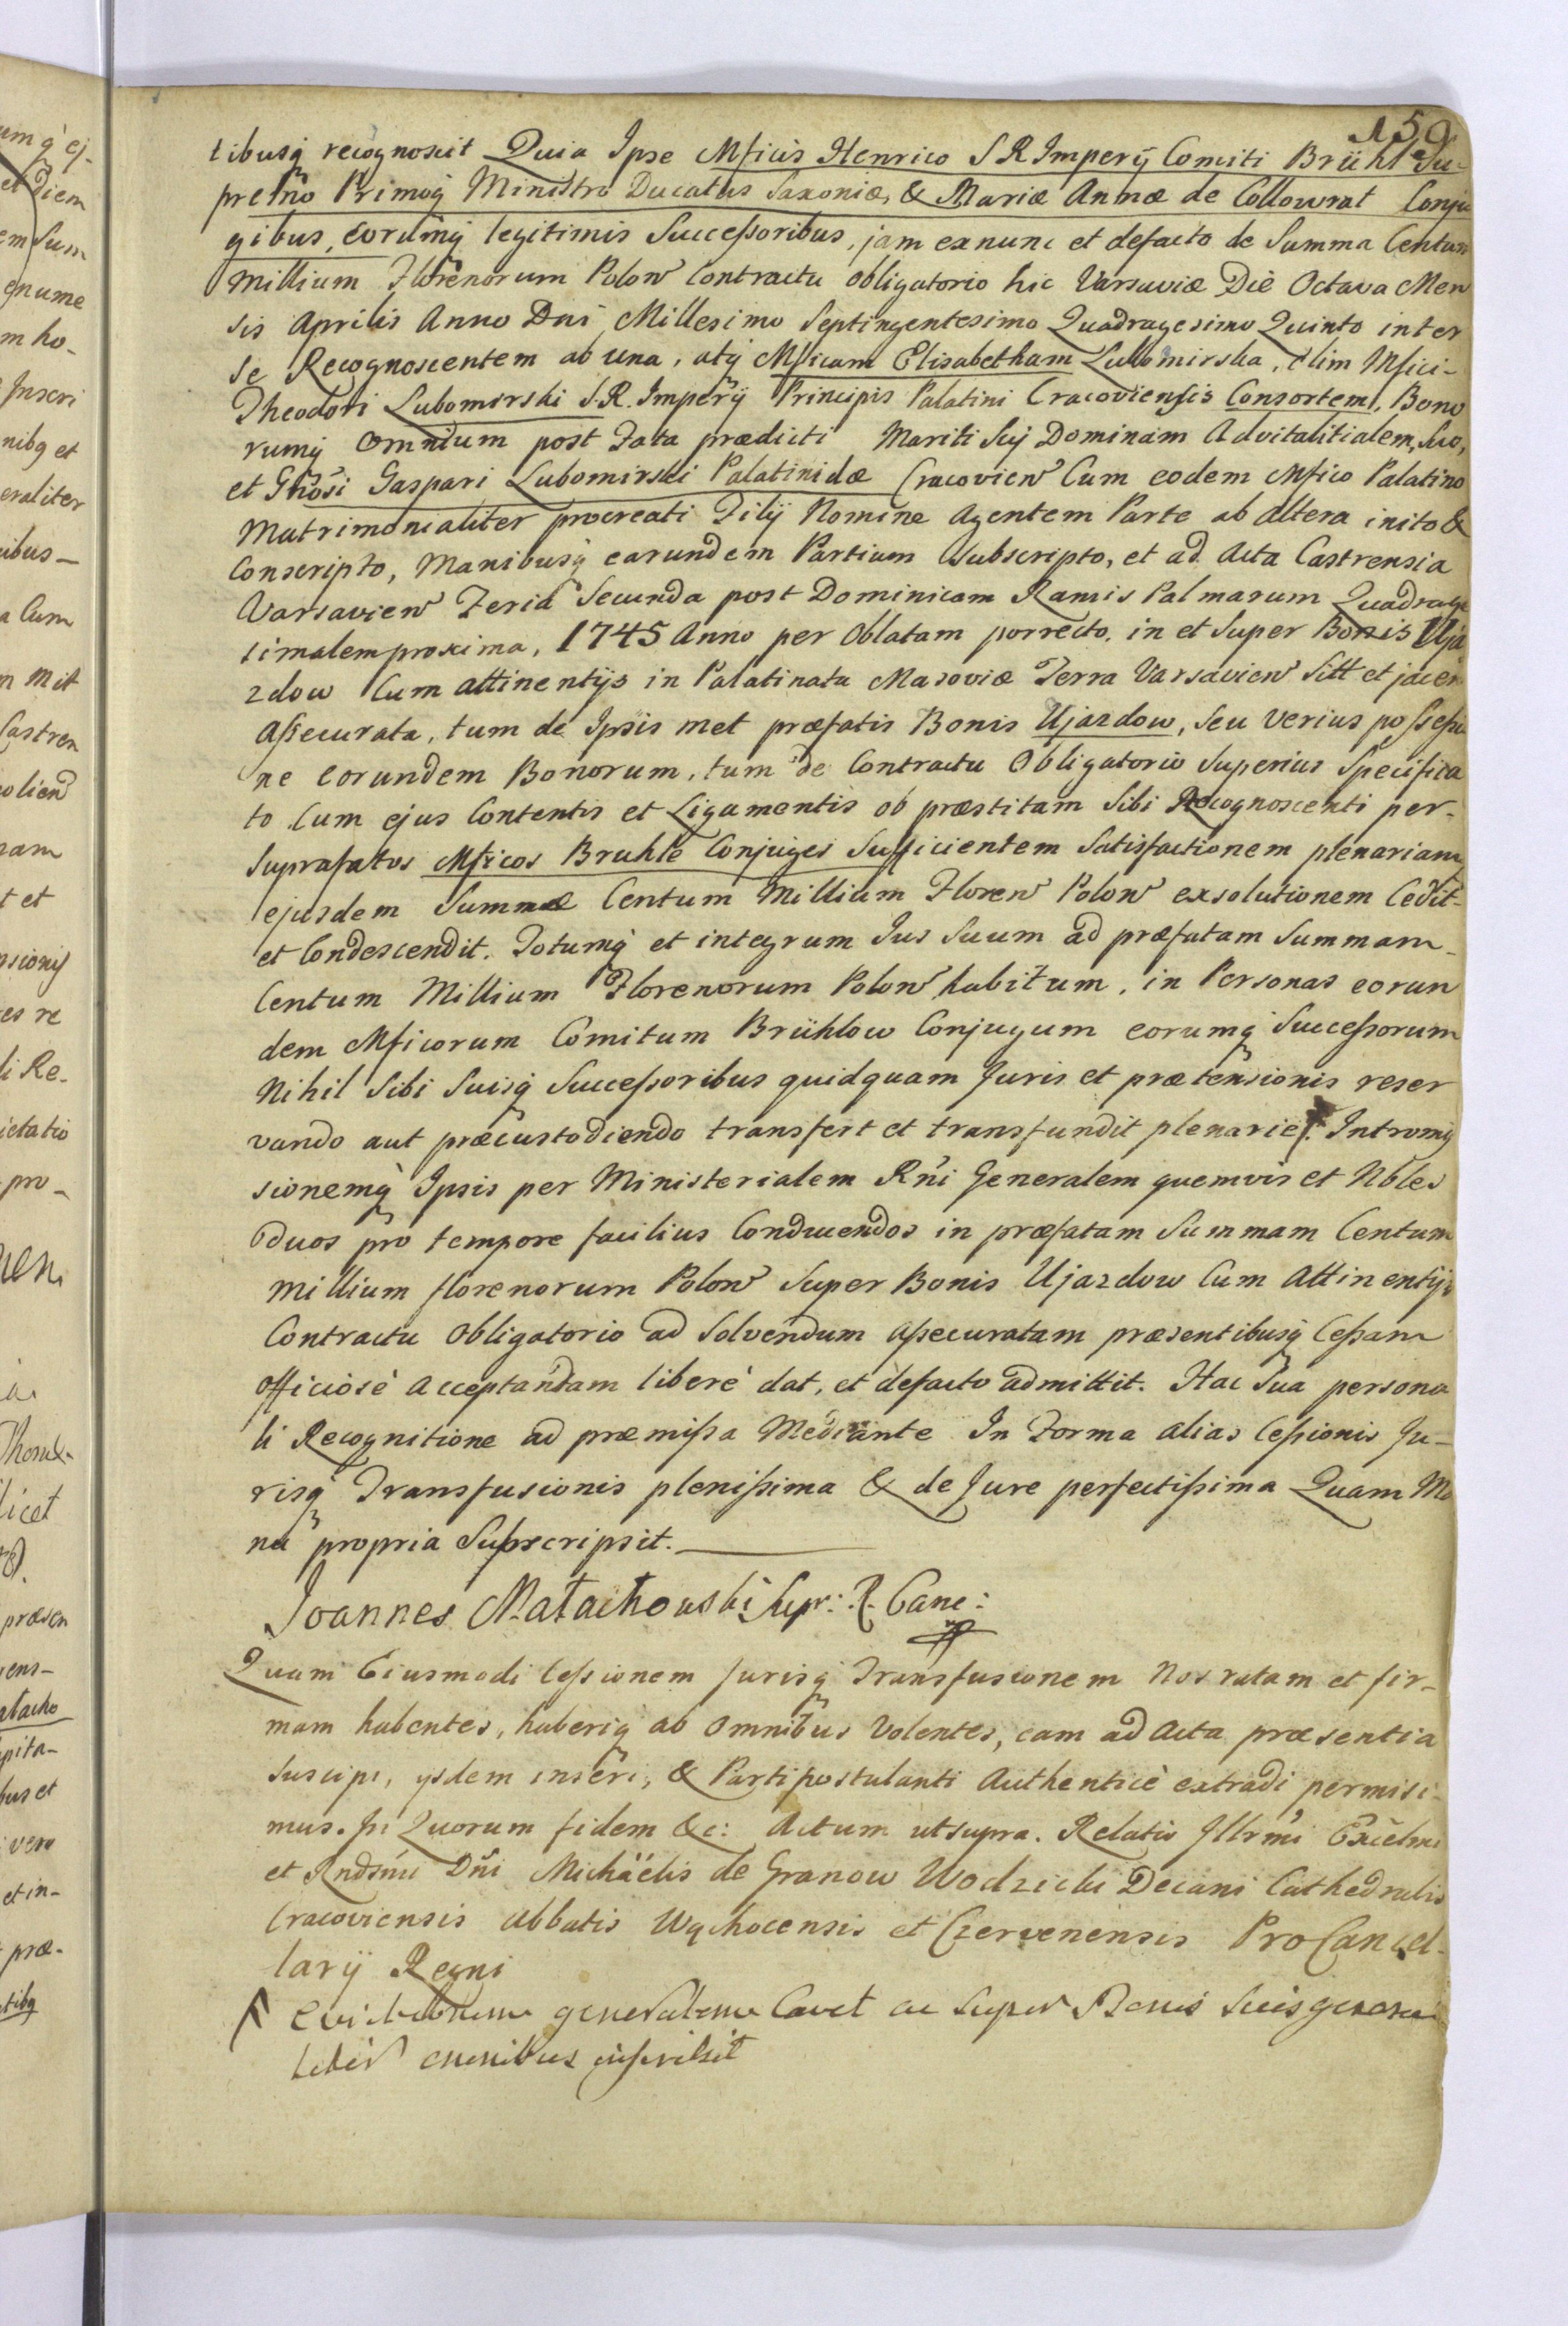 159
tibusq recognoscit Quia Ipse Mficus Henrico S R Imperÿ Comiti Brühl Su-
premo Primoq Ministro Ducatus Saxoniæ, & Mariæ Annæ de Collowrat Conju
gibus, eorumq legitimis Successoribus, jam exnunc et defacto de Summa Centum
Millium Florenorum Polon Contractu obligatorio hic Varsaviæ Die Octava Men
sis Aprilis Anno Dni Millesimo Septingentesimo Quadragesimo Quinto inter
se Recognoscentem ab una, atq Mficam Elisabetham Lubomirska, olim Mfici-
Theodori Lubomirski S.R. Imperÿ Principis Palatini Cracoviensis Consortem, Bono
rumq omnium post Fata prædicti Mariti Sui Dominam Advitalitialem, Suo,
et Gnosi Gaspari Lubomirski Palatinidæ Cracovien Cum eodem Mfico Palatino
Matrimonialiter procreati Filÿ Nomine Agentem Parte ab altera inito &
Conscripto, Manibusq earundem Partium Subscripto, et ad Acta Castrensia
Varsavien Feria Secunda post Dominicam Ramis Palmarum Quadrage
simalem proxima, 1745 Anno per Oblatam porrecto, in et Super Bonis Uja
zdow Cum attinentÿs in Palatinatu Masoviæ Terra Varsavien Sitt et jacen
assecurata, tum de Ipsis met præfatis Bonis Ujazdow, seu verius possessio
ne eorundem Bonorum, tum de Contractu Obligatorio Superius Specifica
to Cum ejus Contentis et Ligamentis ob præstitam Sibi Recognoscenti per-
Suprafatos Mficos Bruhle Conjuges Sufficientem Satisfactionem plenariam
ejusdem Summæ Centum Millium Floren Polon exsolutionem Cedit-
et Condescendit. Totumq et integrum Jus Suum ad præfatam Summam-
Centum Millium Florenorum Polon habitum, in Personas eorun
dem Mficorum Comitum Brühlow Conjugum eorumq Successorum
Nihil Sibi Suisq Successoribus quidquam Juris et prætensionis reser
vando aut præcustodiendo transfert et transfundit plenarie. Intromis
sionemq Ipsis per Ministerialem Rni Generalem quemvis et Nbles
duos pro tempore facilius Conducendos in præfatam Summam Centum
Millium florenorum Polon Super Bonis Ujazdow Cum Attinentÿs
Contractu Obligatorio ad Solvendum Assecuratam præsentibusq Cessam
officiose acceptandam libere dat, et defacto admittit. Hac Sua persona
li Recognitione ad præmissa Mediante In Forma alias Cessionis Ju-
risq Transfusionis plenissima & de Jure perfectissima Quam Ma
nu propria Subscripsit.
Joannes Małachowski Supr: R. Canc:
Quam Eiusmodi Cessionem Jurisq Transfusionem Nos ratam et fir-
mam habentes, haberiq ab omnibus Volentes, eam ad Acta præsentia
Suscipi, ijsdem inseri, & Parti postulanti Authentice extradi permisi-
mus. In Quorum fidem &c: Actum ut supra. Relatio Illrmi Excelmi
et Rndsmi Dni Michäelis de Granow Wodzicki Decani Cathedralis
Cracoviensis Abbatis Wąchocensis et Czervenensis ProCancel-
larÿ Regni
Evictionem generalem Cavet ac Super Bonis Suis genera
liter omnibus inscribit